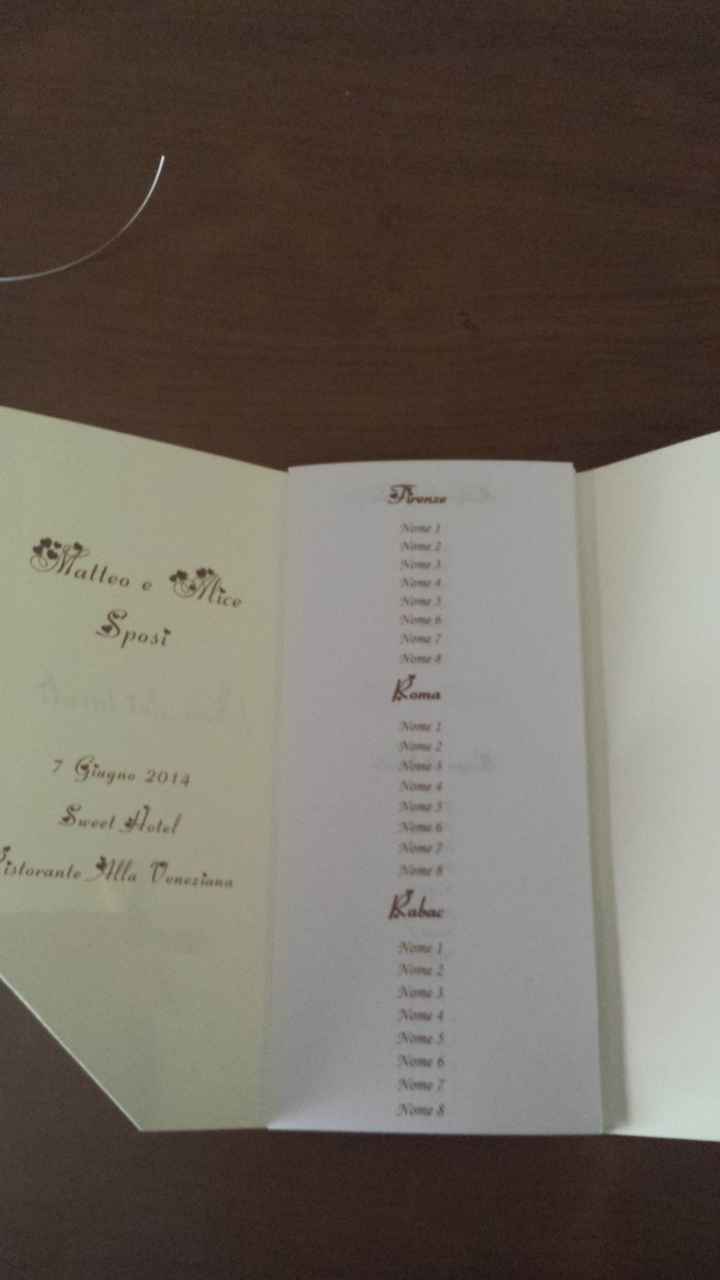 Matteo e Alice
Sposi
7 Giugno 2014
Sweet Hotel
Ristorante Alla Veneziana
Firenze
Nome 1
Nome 2
Nome 3
Nome 4
Nome 5
Nome 6
Nome 7
Nome 8
Roma
Nome 1
Nome 2
Nome 3
Nome 4
Nome 5
Nome 6
Nome 7
Nome 8
Rabac
Nome 1
Nome 2
Nome 3
Nome 4
Nome 5
Nome 6
Nome 7
Nome 8